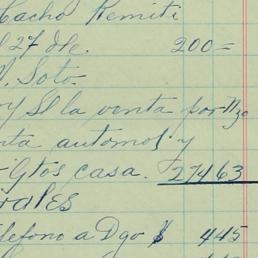 Cacho Remiti
27 de. 200=
Soto
y Sl la venta por Mzo
ta automol y
Gtos casa. 27463
rales
lefono a Dgo $ 445